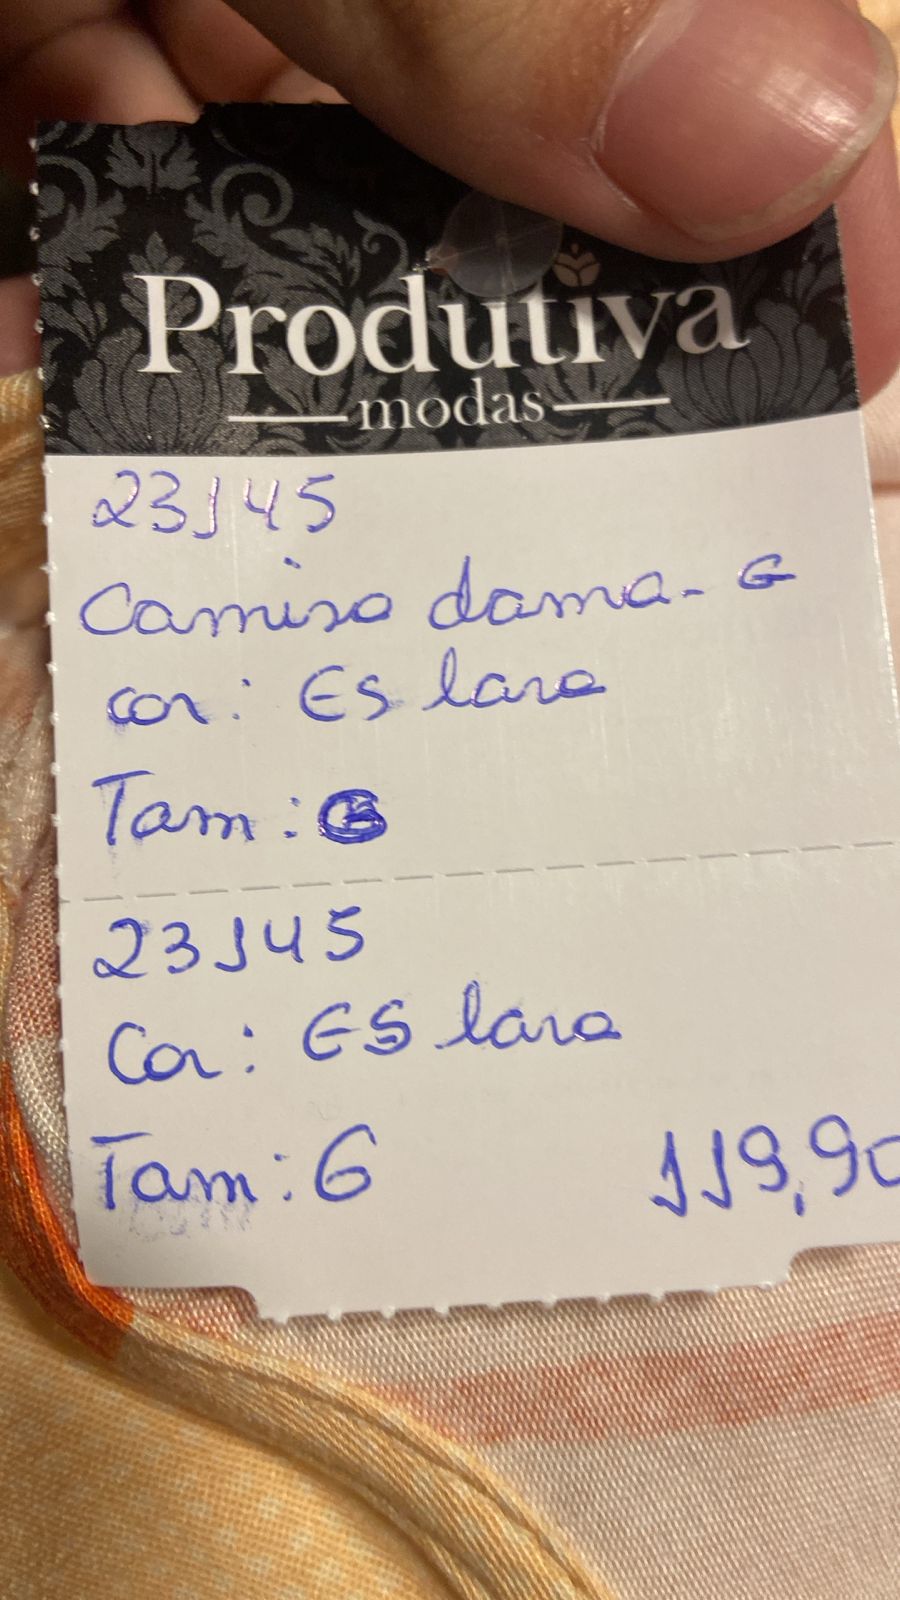 Produtiva
modas
23145
Camisa dama - G
cor: ES lara
Tam: G
23145
Cor: ES lara
Tam: G 119,90